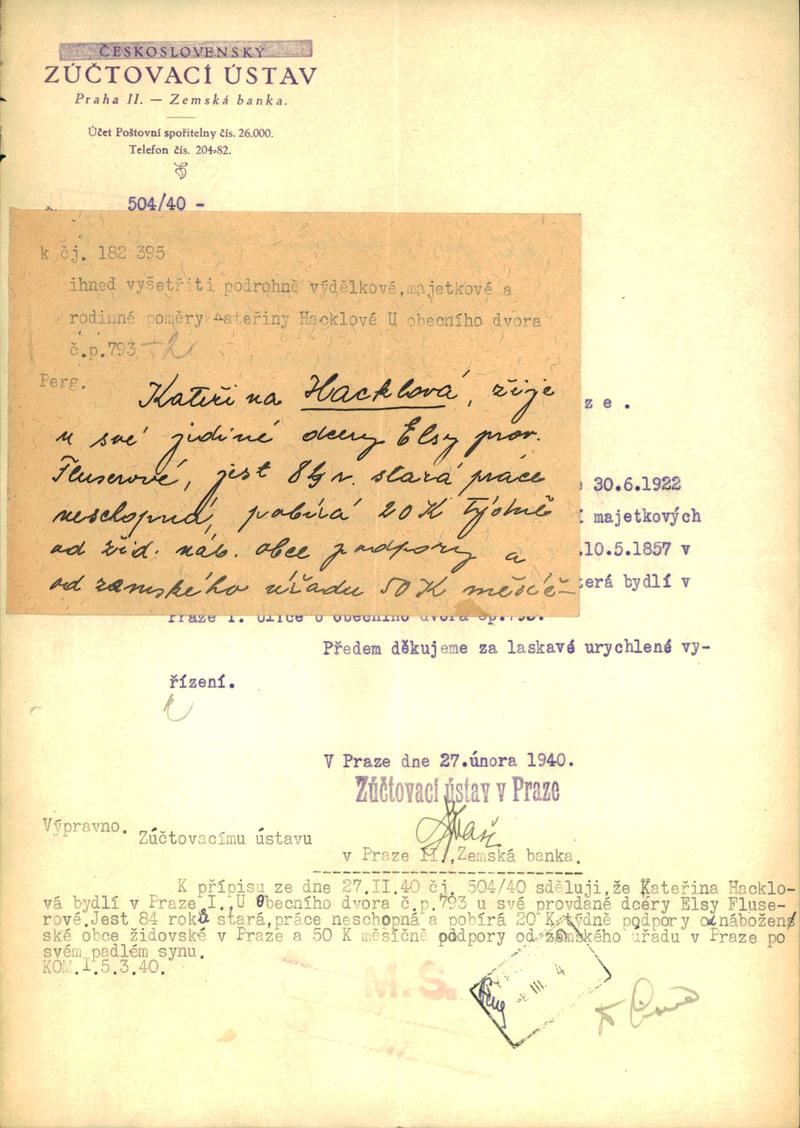 ČESKOSLOVENSKÝ
ZÚČTOVACÍ ÚSTAV
Praha II. — Zemská banka.
Účet Poštovní spořitelny čís. 26.000.
Telefon čís. 204-82.
504/40 -
k čj. 182 395
ihned vyšetřiti podrohně výdělkové,majetkové a
rodinné poměry Kateřiny Hacklové U obecního dvora
č.p.793
Perg.
Kateřina Hacklová, žije
u své jediné dcery Elsy prov.
Fluserové, jest stará práce
neschopná, pobírá 20 K týdně
od žid. náb. obce podpory a
od zemského úřadu 50 K měsíč-
ze.
30.6.1922
majetkových
.10.5.1857 v
terá bydlí v
Praze I. ulice U obecního dvora čp.793.
Předem děkujeme za laskavé urychlené vy-
řízení.
V Praze dne 27.února 1940.
Zúčtovací ústav v Praze
Výpravno.
Zúčtovacímu ústavu
v Praze II,Zemská banka.
K přípisu ze dne 27.II.40 čj. 504/40 sděluji,že Kateřina Hacklo-
vá bydlí v Praze I.,U Obecního dvora č.p.793 u své provdané dcéry Elsy Fluse-
rové.Jest 84 roků stará,práce neschopná a pobírá 20 K týdně podpory od nábožen
ské obce židovské v Praze a 50 K měsíčně podpory od zemského úřadu v Praze po
svém padlém synu.
KOM.I.5.3.40.
M.S.
III. 4